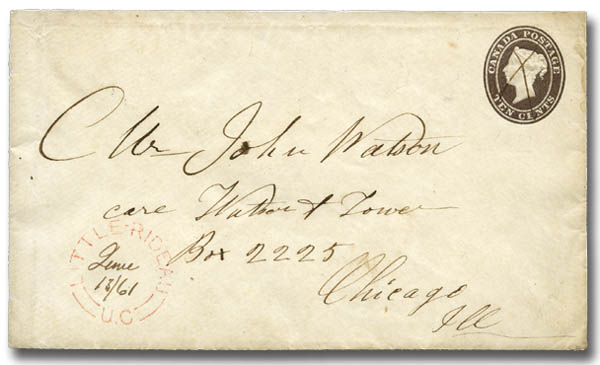 CANADA POSTAGE
TEN CENTS
C Wm John Watson
care Watson & Tower
Box 2225
Chicago
Ill
LITTLE-RIDEAU
June
13/61
U.C